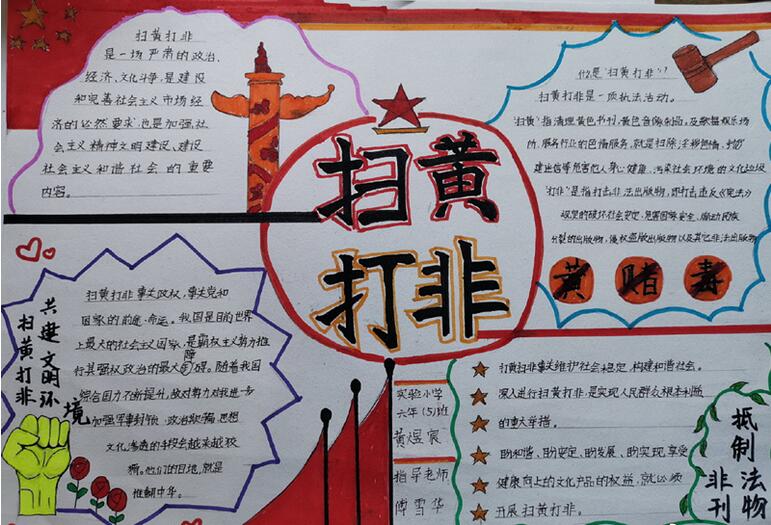 扫黄打非
扫黄打非
是一场严肃的政治、
经济、文化斗争,是建设
和完善社会主义市场经
济的必然要求,也是加强社
会主义精神文明建设、建设
社会主义和谐社会的重要
内容。
什么是"扫黄打非"?
扫黄打非是一项执法活动。
"扫黄"指清理黄色书刊、黄色音像制品,及歌舞娱乐场
所、服务行业的色情服务,就是扫除淫秽色情、封
建迷信等危害他人身心健康、污染社会环境的文化垃圾
"打非"是指打击非法出版物,即打击违反《宪法》
规定的破坏社会安定、危害国家安全、煽动民族
分裂的出版物,侵权盗版出版物以及其它非法出版物
黄 赌 毒
共建文明环境
扫黄打非
扫黄打非事关政权,事关党和
国家的前途、命运。我国是目前世界
上最大的社会主义国家,是霸权主义势力推
行其强权政治的最大障碍。随着我国
综合国力不断提升,敌对势力对我进一步
加强军事封锁、政治欺骗、思想
文化渗透的手段会越来越狡
猾。他们的目地,就是
推翻中华。
实验小学
六年(5)班
黄煜宸
指导老师
傅雪华
打黄扫非事关维护社会稳定,构建和谐社会。
深入进行扫黄打非,是实现人民群众根本利益
的重大举措。
盼和谐、盼安定、盼发展、盼实现,享受
健康向上的文化产品的权益,就必须
开展扫黄打非。
抵制非法刊物